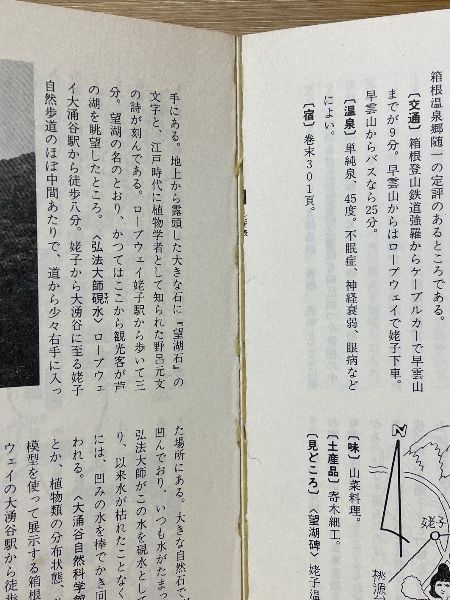 箱根温泉郷随一の定評のあるところである。
〔交通〕箱根登山鉄道強羅からケーブルカーで早雲山
までが9分。早雲山からはロープウェイで姥子下車。
早雲山からバスなら25分。
〔温泉〕単純泉、45度。不眠症、神経衰弱、眼病など
によい。
〔宿〕巻末301頁。
〔味〕山菜料理。
〔土産品〕寄木細工。
〔見どころ〕〈望湖碑〉姥子温
N
姥子
桃源
手にある。地上から露頭した大きな石に『望湖石』の
文字と、江戸時代に植物学者として知られた野呂元丈
の詩が刻んである。ロープウェイ姥子駅から歩いて三
分。望湖の名のとおり、かつてはここから観光客が芦
の湖を眺望したところ。〈弘法大師硯水〉ロープウェ
イ大涌谷駅から徒歩八分。姥子から大涌谷に至る姥子
自然歩道のほぼ中間あたりで、道から少々右手に入っ
た場所にある。大きな自然石で
凹んでおり、いつも水がたまっ
弘法大師がこの水を硯水として
り、以来水が枯れたことなく
には、凹みの水を棒でかき回
われる。〈大涌谷自然科学館
とか、植物類の分布状態、
模型を使って展示する箱根
ウェイの大涌谷駅から徒歩